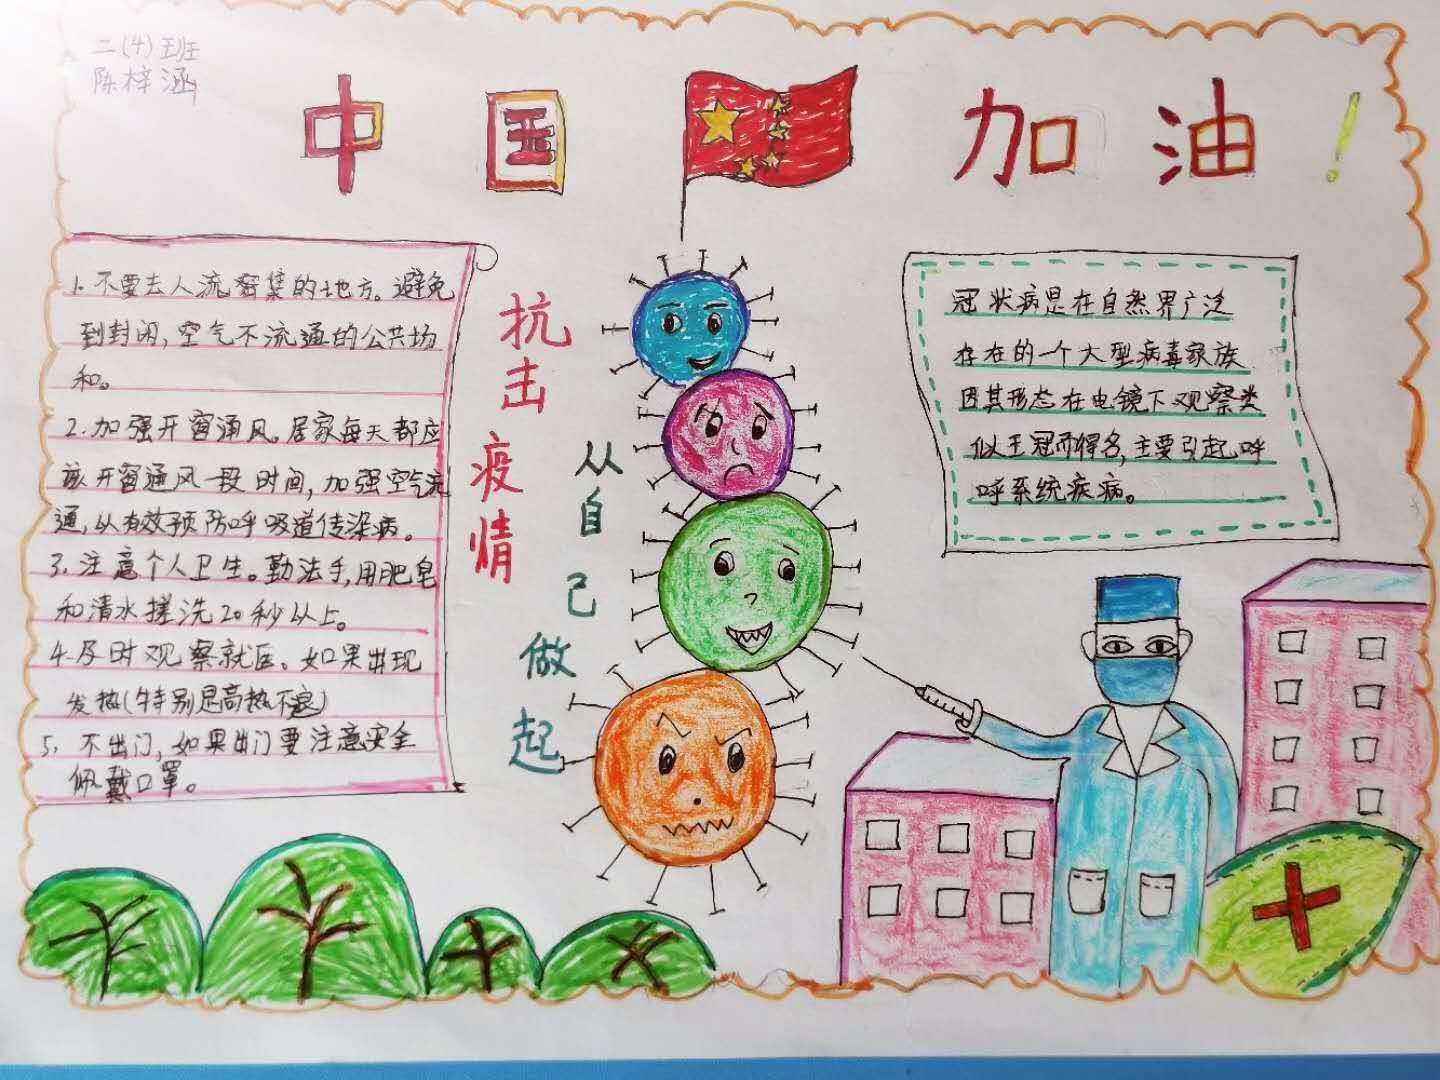 二(4)班
陈梓涵
中国加油！
1.不要去人流密集的地方。避免
到封闭,空气不流通的公共场
和。
2.加强开窗通风。居家每天都应
该开窗通风一段时间,加强空气流
通,以有效预防呼吸道传染病。
3.注意个人卫生。勤洗手,用肥皂
和清水搓洗20秒以上。
4.及时观察就医。如果出现
发热(特别是高热不退)
5.不出门,如果出门要注意安全
佩戴口罩。
抗击疫情
从自己做起
冠状病是在自然界广泛
存在的一个大型病毒家族
因其形态在电镜下观察类
似王冠而得名,主要引起呼
呼系统疾病。